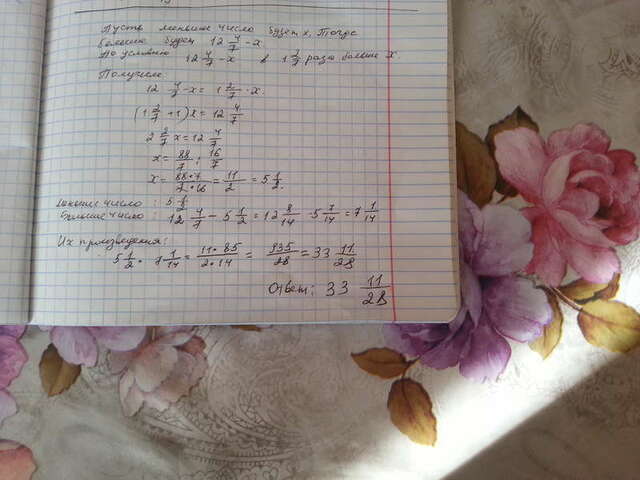 Пусть меньшее число будет x. Тогда
большее будет 12 4/7 - x
По условию 12 4/7 - x в 1 2/7 раза больше x.
Получили
12 4/7 - x = 1 2/7 · x.
(1 2/7 + 1)x = 12 4/7
2 2/7 x = 12 4/7
x = 88/7 : 16/7
x = 88·7/7·16 = 11/2 = 5 1/2.
меньшее число : 5 1/2
большее число : 12 4/7 - 5 1/2 = 12 8/14 - 5 7/14 = 7 1/14
Их произведения:
5 1/2 · 7 1/14 = 11·85/2·14 = 935/28 = 33 11/28
Ответ: 33 11/28